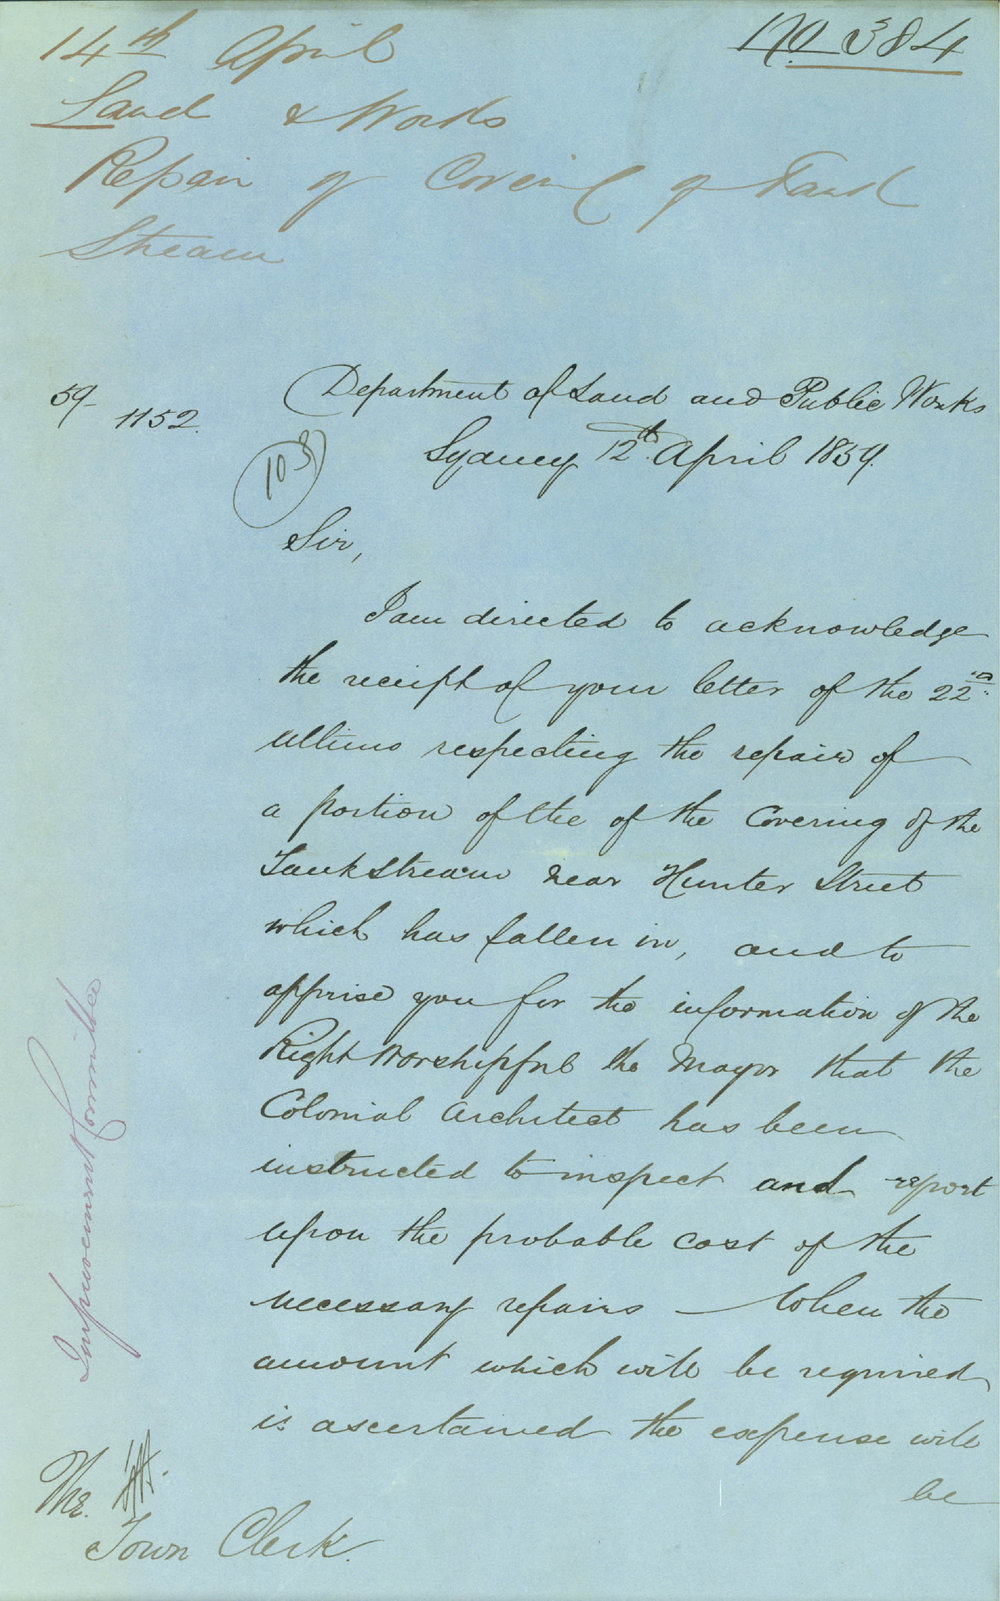 14th April
No. 384
Land & Works
Repair of Covering of Tank
Stream
59-1152.
Department of Land and Public Works
Sydney 12th April 1859.
Sir,
I am directed to acknowledge
the receipt of your letter of the 22nd
Ultimo respecting the repair of
a portion of the of the Covering of the
Tank Stream near Hunter Street
which has fallen in, and to
apprise you for the information of the
Right Worshipful the Mayor that the
Colonial Architect has been
instructed to inspect and report
upon the probable cost of the
necessary repairs – When the
amount which will be required
is ascertained the expense will
be
Improvement Committee
The
Town Clerk.